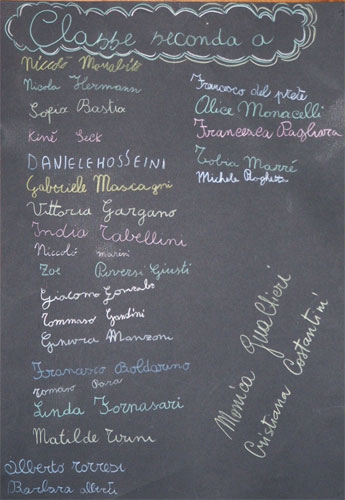 Classe seconda a
Niccolò Monabito
Nicola Hermann
Sofia Bastia
Kiné Seck
DANIELE HOSSEINI
Gabriele Mascagni
Vittoria Gargano
India Tabellini
Niccolò marini
Zoe Riversi Giusti
Giacomo Gonzalo
Tommaso Gandini
Ginevra Manzoni
Francesco Boldarino
Tomaso Para
Linda Fornasari
Matilde Trini
Alberto Torresi
Barbara
Francesco del prete
Alice Monacelli
Francesca Pagliura
Tobia Marré
Michele
Monica Gualtieri
Cristiana Costantini